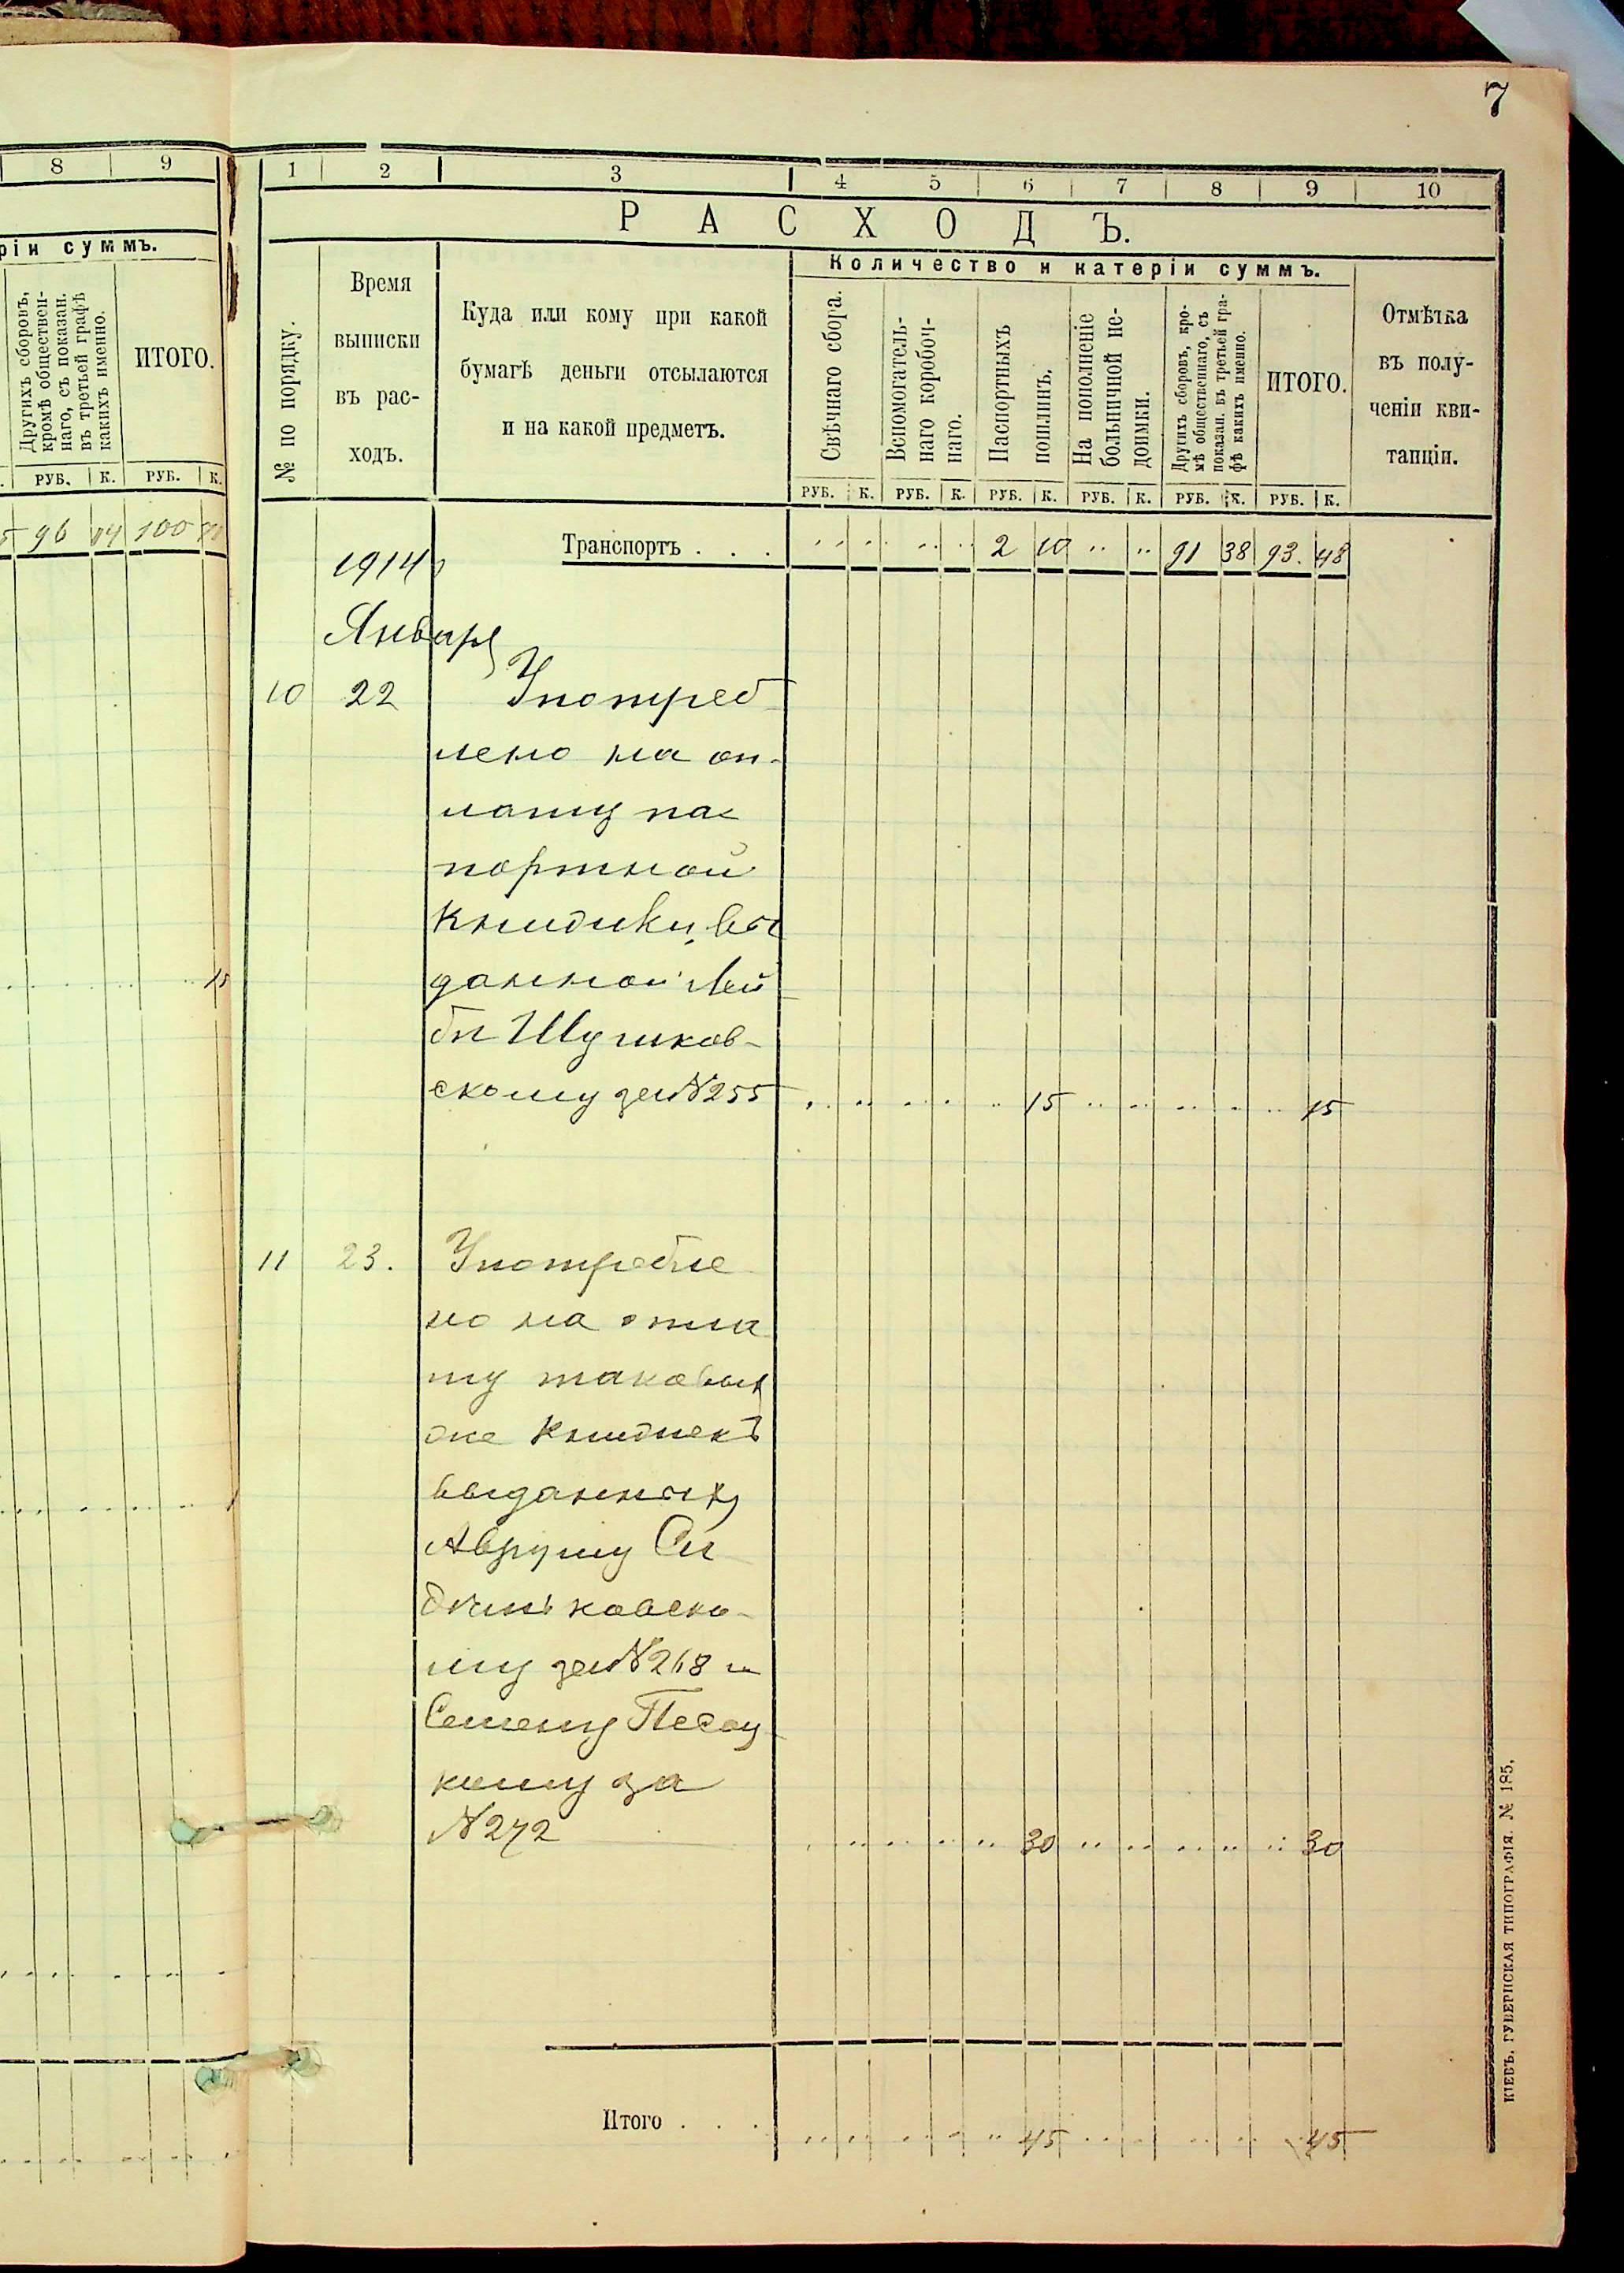 7
8 9
ріи суммъ.
Другихъ сборовъ,
кромѣ обществен-
наго, съ показан.
въ третьей графѣ
какихъ именно.
ИТОГО.
РУБ. К. РУБ. К.
96 04 100
15
1 2 3 4 5 6 7 8 9 10
РАСХОДЪ.
№ по порядку.
Время
выписки
въ рас-
ходъ.
Куда или кому при какой
бумагѣ деньги отсылаются
и на какой предметъ.
Количество и катеріи суммъ.
Свѣчнаго сбора.
Вспомогатель-
наго коробоч-
наго.
Паспортныхъ
пошлинъ.
На пополненіе
больничной не-
доимки.
Другихъ сборовъ, кро-
мѣ общественнаго, съ
показан. въ третьей гра-
фѣ какихъ именно.
ИТОГО.
Отмѣтка
въ полу-
ченіи кви-
танціи.
РУБ. К. РУБ. К. РУБ. К. РУБ. К. РУБ. К. РУБ. К.
Транспортъ . . . 2 10 91 38 93. 48
1914
Января
10 22 Употреб
лено на оп-
лату пас
портной
книжки, вы
данной Лей
бѣ Шушков-
скому за №255 15 15
11 23. Употребле
но на опла
ту таковых
же книжекъ
выданных
Авруму Си
му за №268 и
Семену Песоц
кому за
№272 30 30
Итого . . . 45 45
КІЕВЪ. ГУБЕРНСКАЯ ТИПОГРАФІЯ. № 185.